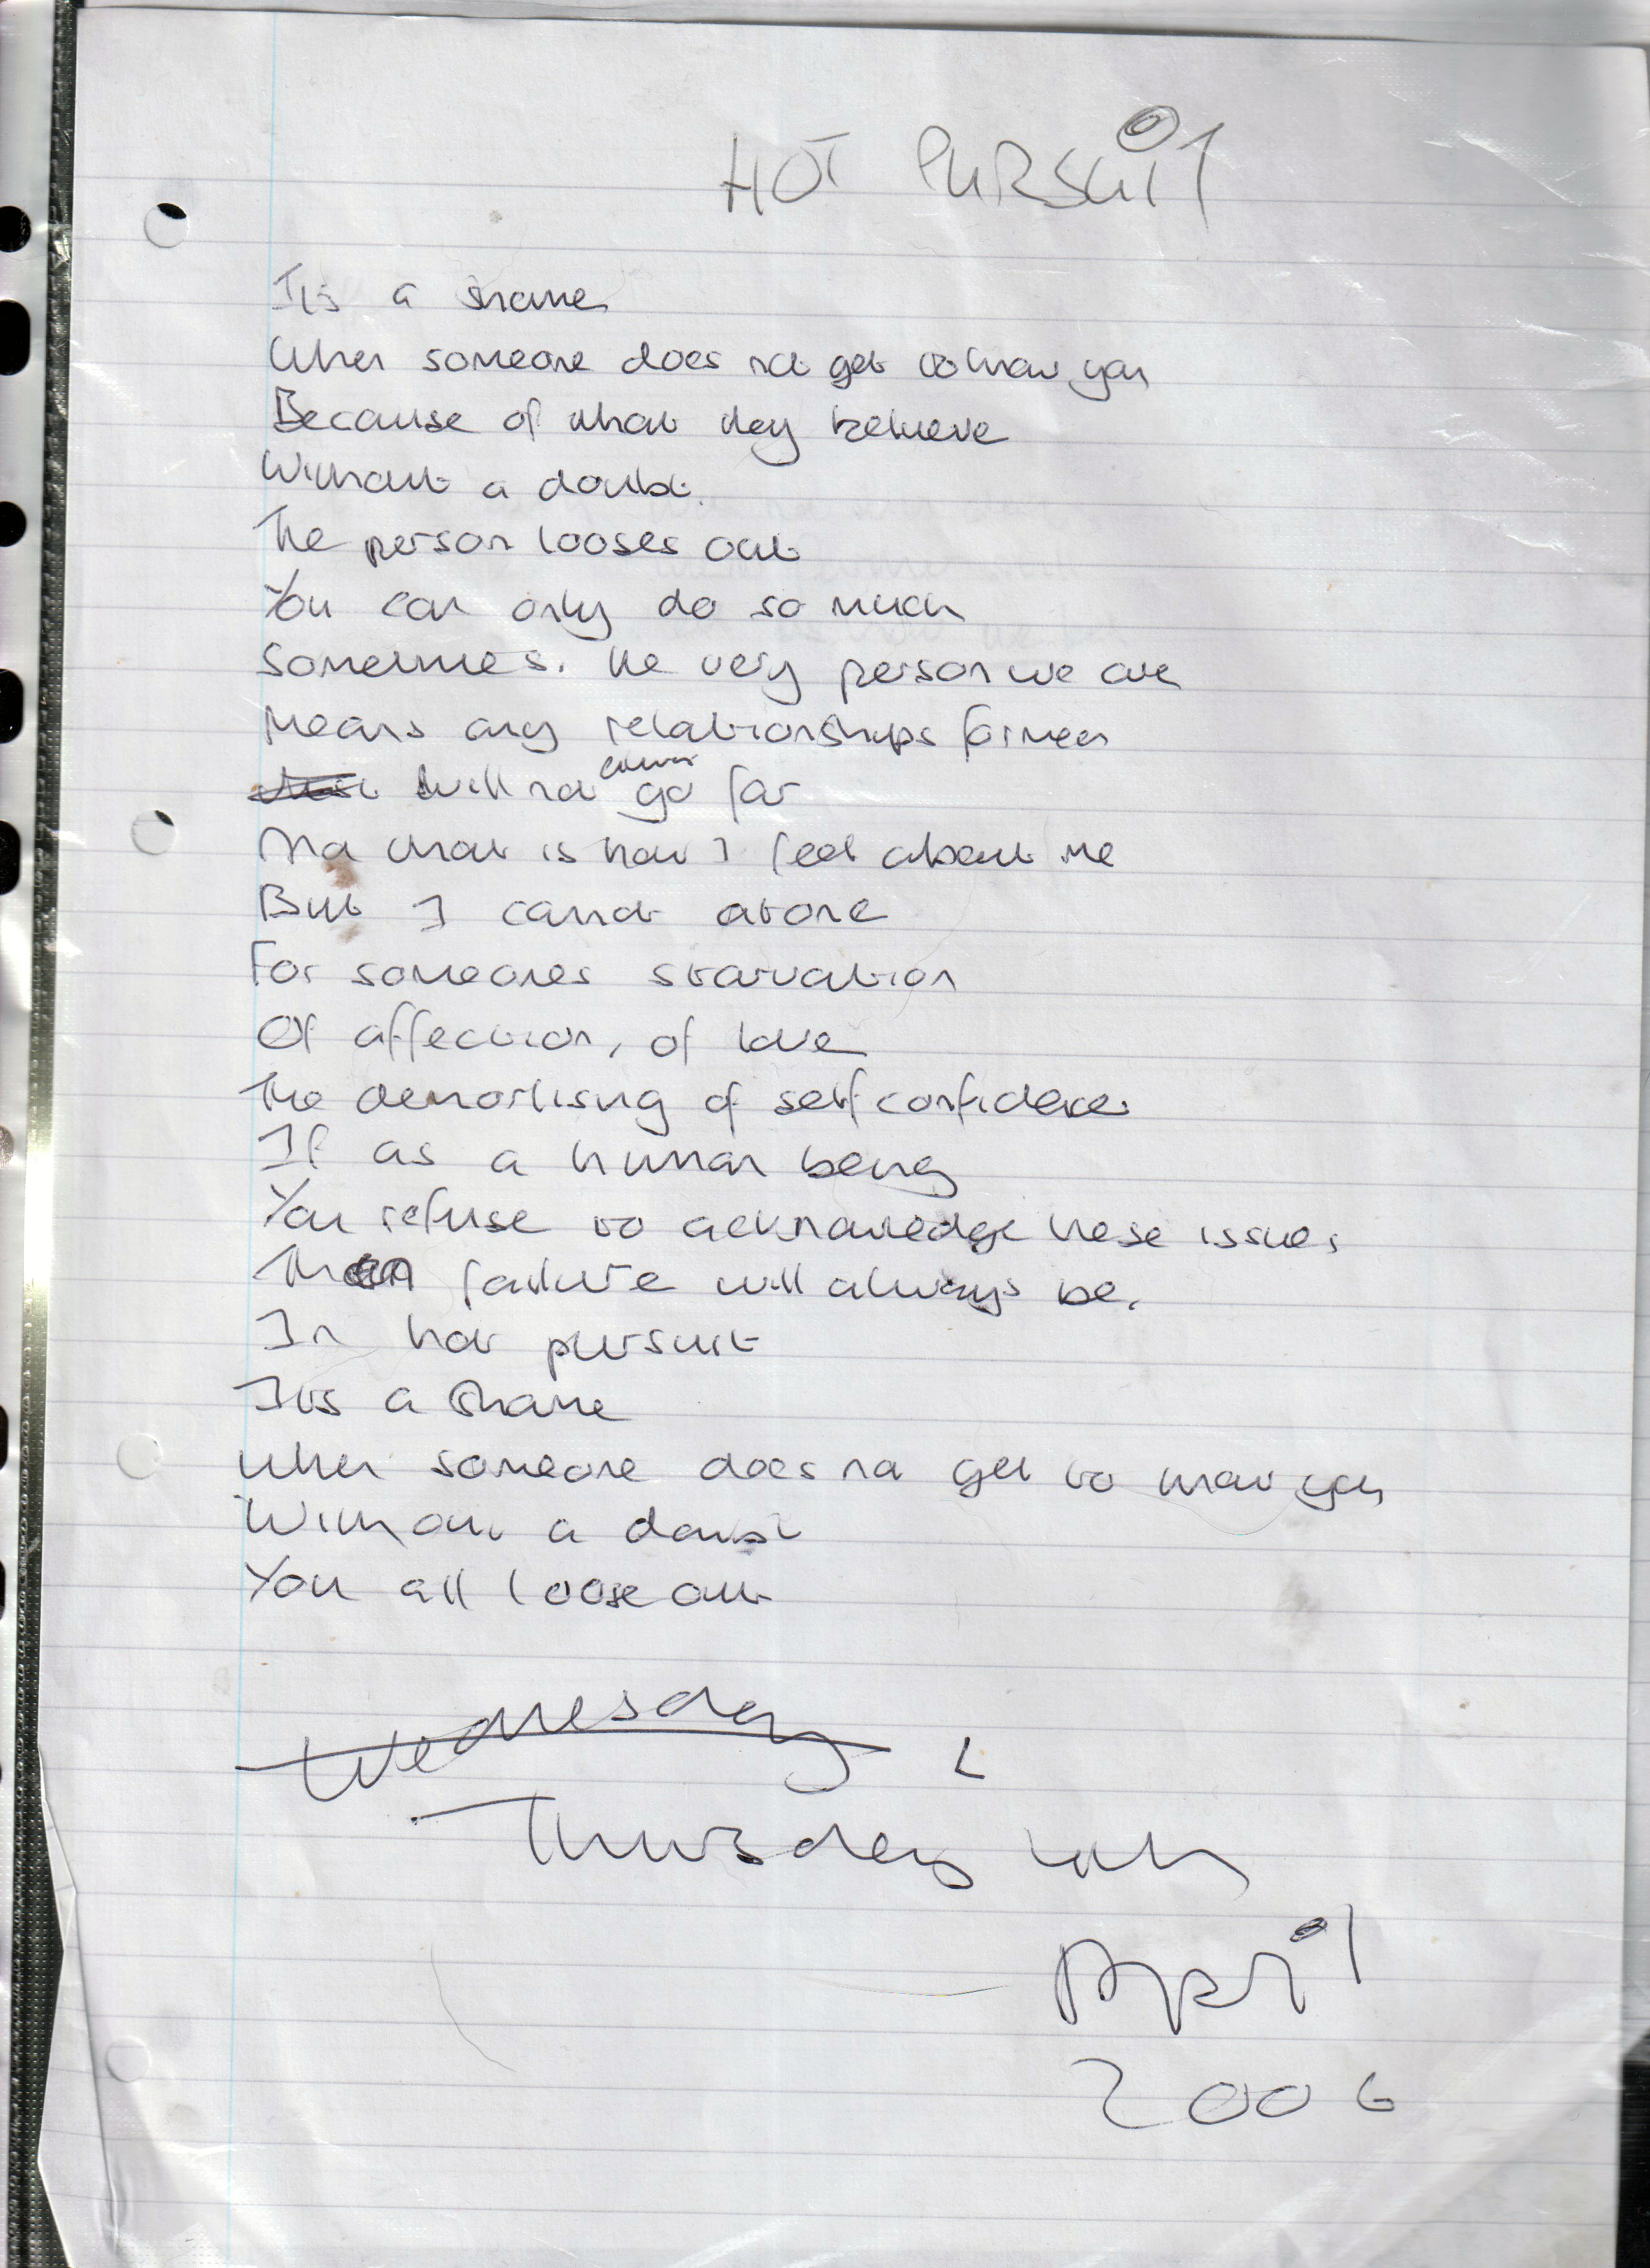 HOT PURSUIT
Its a shame
When someone does not get to know you
Because of what they believe
Without a doubt.
The person looses out
You can only do so much
Sometimes. The very person we are
Means any relationships formed
will not go far
Not that is how I feel about me
But I cannot atone
For someones starvation
Of affection, of love
The demorlising of self confidence.
If as a human being
You refuse to acknowledge these issues
Then failure will always be.
In hot pursuit
Its a shame
When someone does not get to know you
Without a doubt
You all loose out
Wednesday
Thursday
April
2006